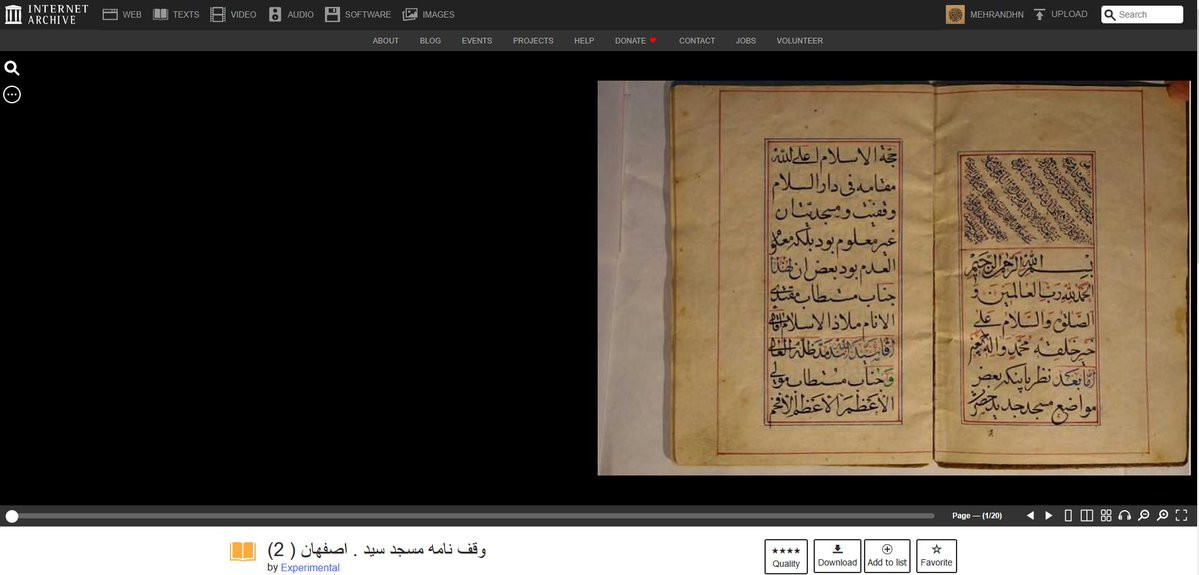 INTERNET ARCHIVE
WEB TEXTS VIDEO AUDIO SOFTWARE IMAGES
MEHRANDHN UPLOAD Search
ABOUT BLOG EVENTS PROJECTS HELP DONATE CONTACT JOBS VOLUNTEER
بسم الله الرحمن الرحیم
الحمد لله رب العالمین و
الصلوة والسلام علی
خیر خلقه محمد واله
اما بعد نظر باینکه بعض
مواضع مسجد جدید
حجة الاسلام اعلی الله
مقامه فی دار السلام
وقفیت و مسجدیتان
غیر معلوم بود بلکه معلوم
العدم بود بعض ان لهذا
جناب مستطاب مقتدی
الانام ملاذ الاسلام
اقا سید اسد الله مد ظله العالی
و جناب مستطاب مولی
الاعظم الاعظم الافخم
Page — (1/20)
وقف نامه مسجد سید . اصفهان ( 2)
by Experimental
★★★★ Quality
Download
Add to list
Favorite